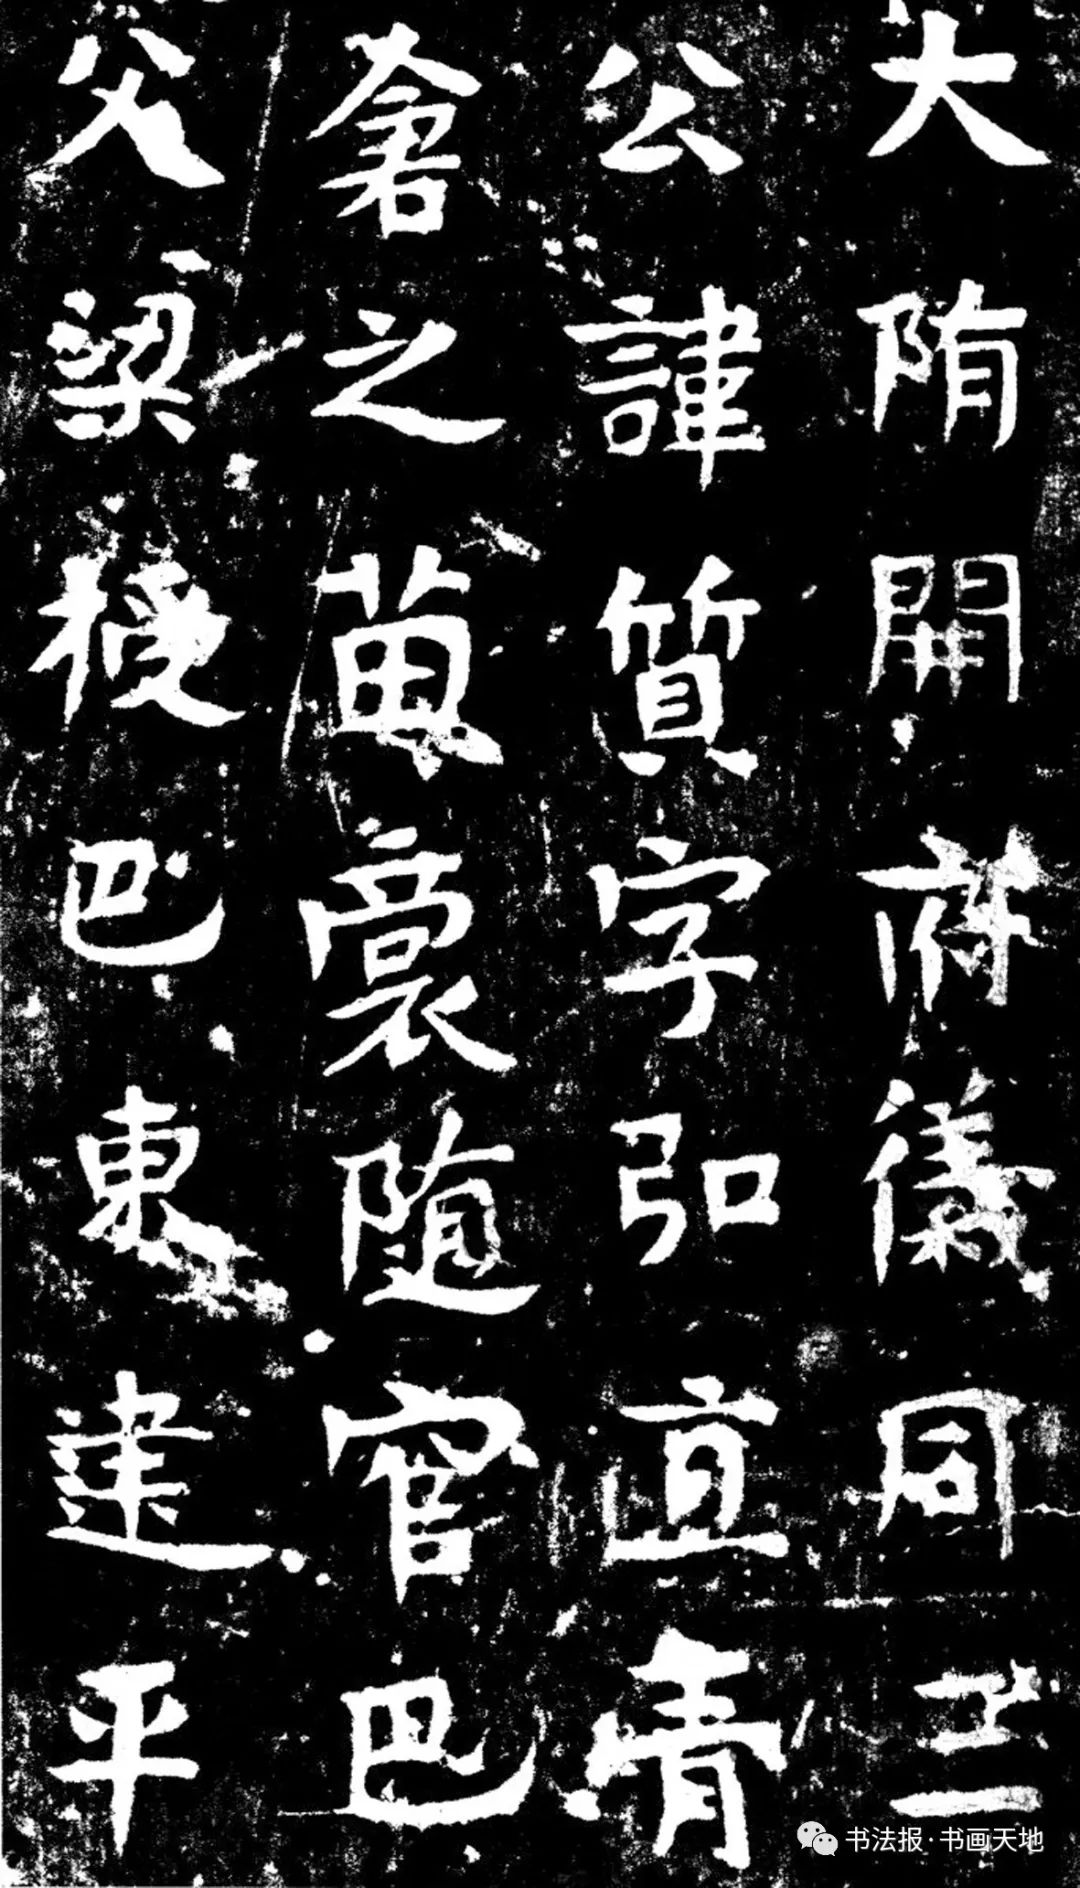 大隋開府儀同三
公諱質字弘直青
倉之苗裔隨官巴
父梁授巴東建平
书法报·书画天地